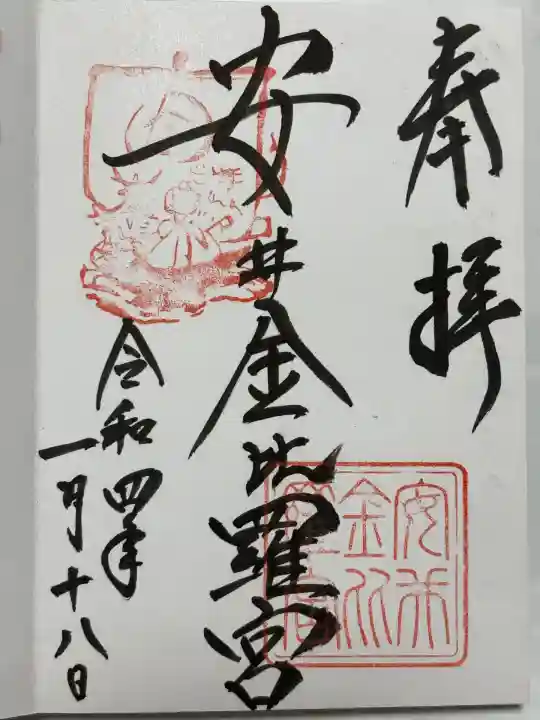 奉拝
安井金比羅宮
安井金比羅宮
令和四年
一月十八日